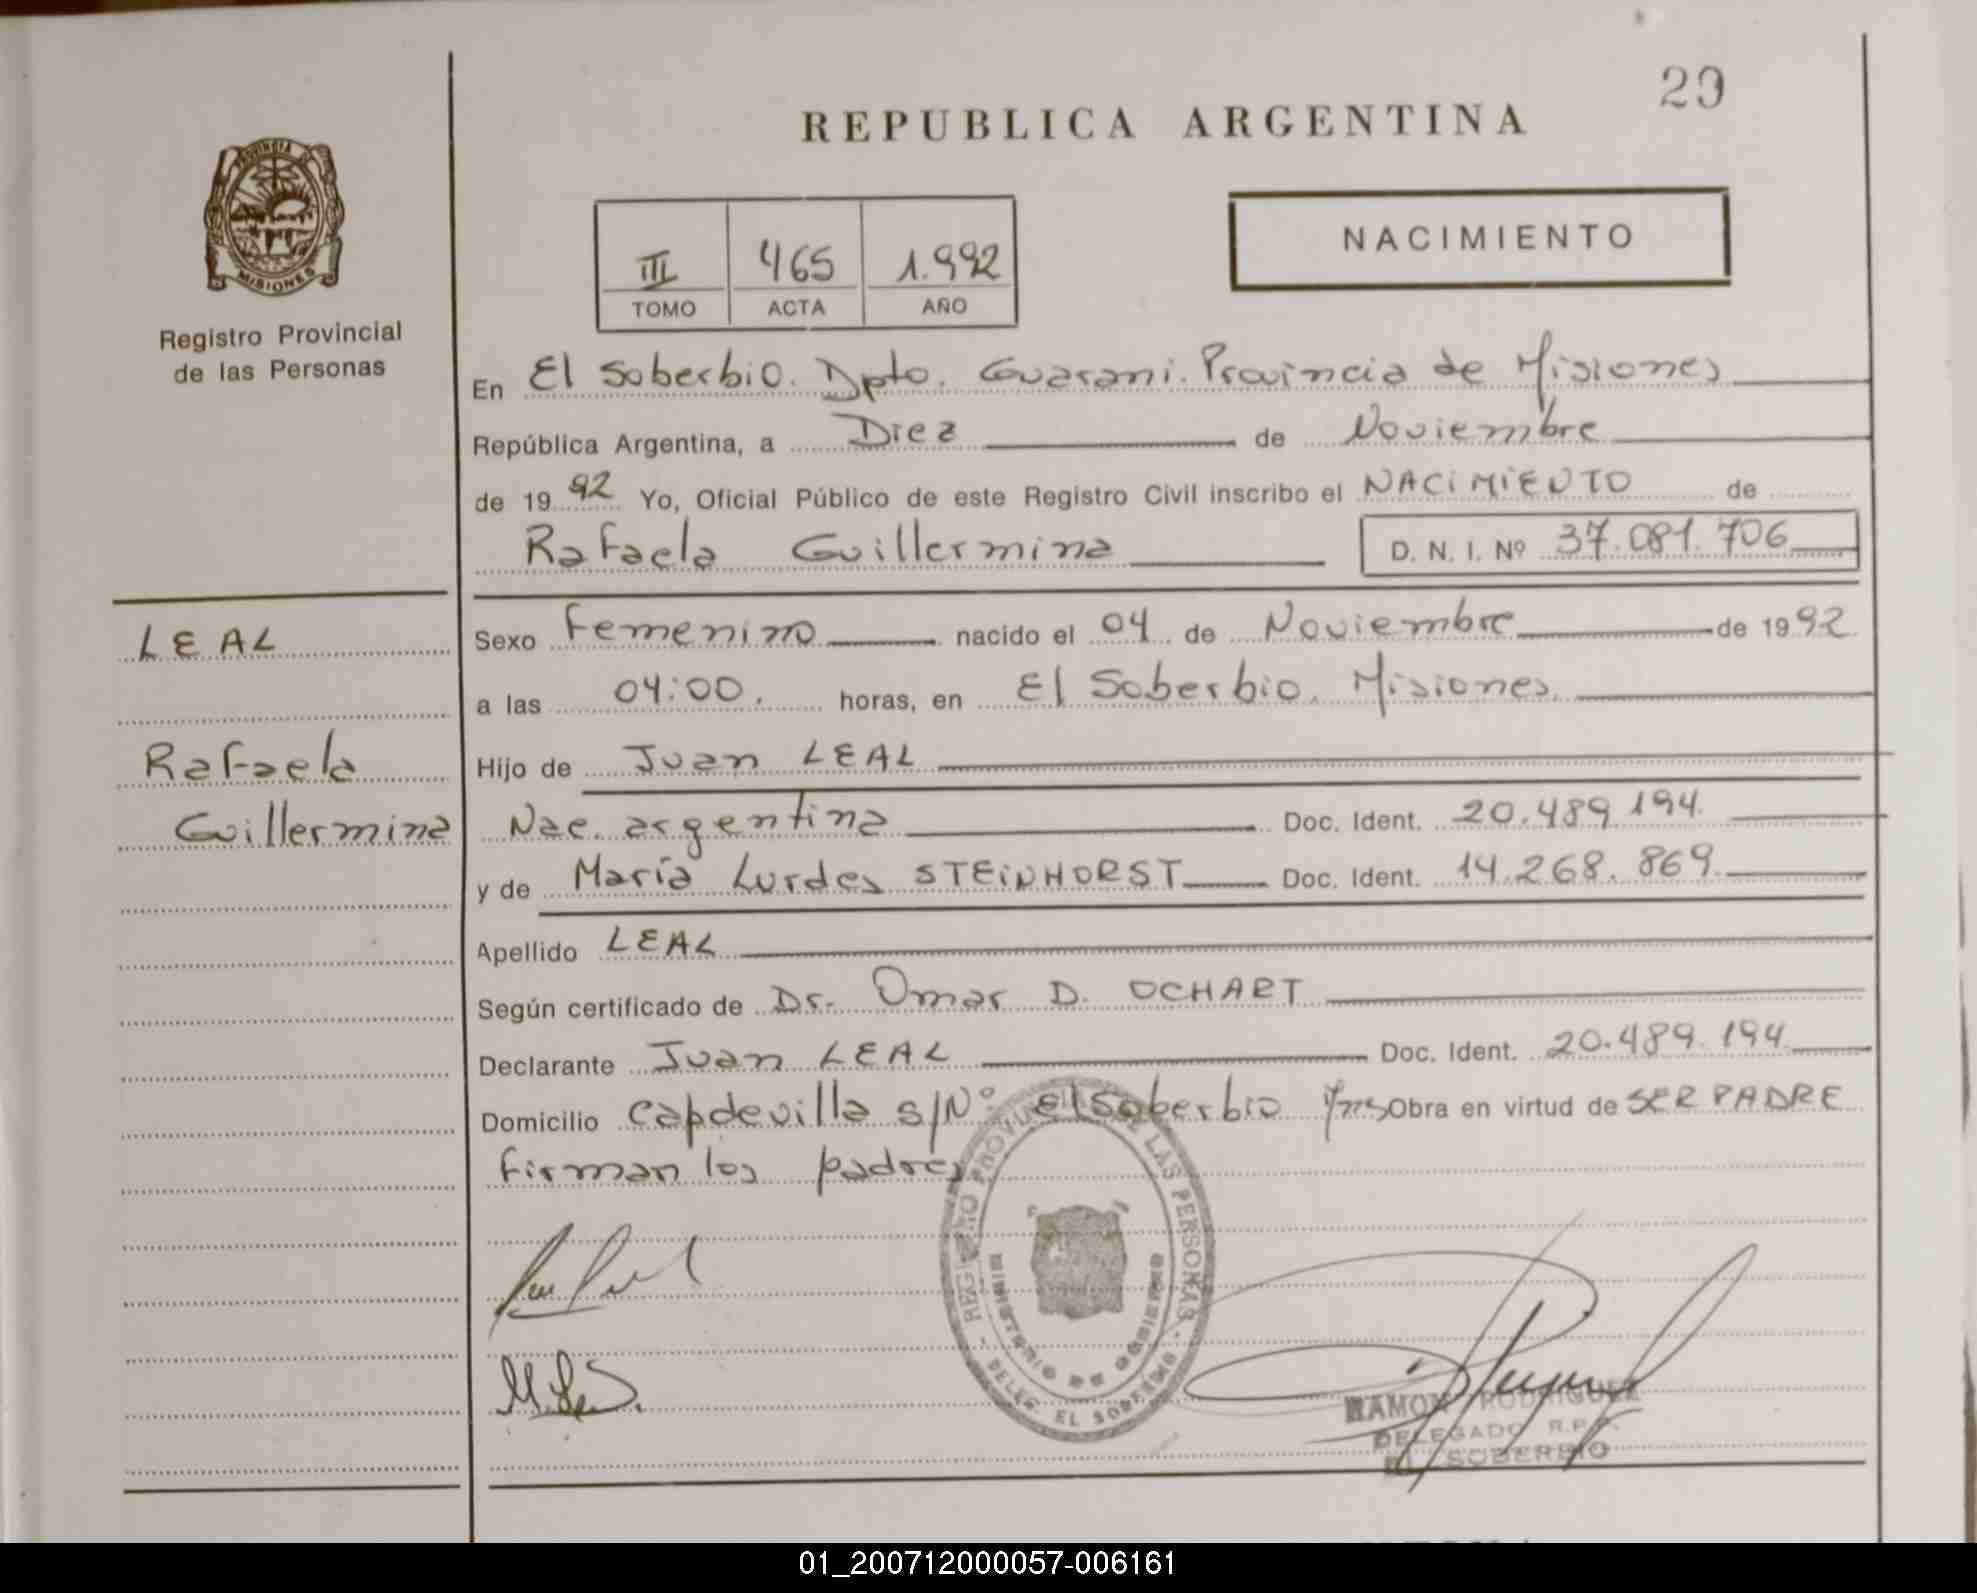 29
REPUBLICA ARGENTINA
PROVINCIA DE
MISIONES
Registro Provincial
de las Personas
NACIMIENTO
III 465 1.992
TOMO ACTA AÑO
En El Soberbio. Dpto. Guarani. Provincia de Misiones
República Argentina, a Diez de Noviembre
de 1992 Yo, Oficial Público de este Registro Civil inscribo el NACIMIENTO de
Rafaela Guillermina D. N. I. Nº 37.081.706
LEAL
Rafaela
Guillermina
Sexo Femenino nacido el 04 de Noviembre de 1992
a las 04:00. horas, en El Soberbio. Misiones.
Hijo de Juan LEAL
Nac. argentina Doc. Ident. 20.489.194.
y de María Lurdes STEINHORST Doc. Ident. 14.268.869.
Apellido LEAL
Según certificado de Dr. Omar D. OCHART
Declarante Juan LEAL Doc. Ident. 20.489.194
Domicilio Capdevilla s/Nº El Soberbio Mnes Obra en virtud de SER PADRE
Firman los padres
REGISTRO PROVINCIAL DE LAS PERSONAS
MINISTERIO DE GOBIERNO
DELEG. EL SOBERBIO
RAMON RODRIGUEZ
DELEGADO R.P.P.
EL SOBERBIO
01_200712000057-006161